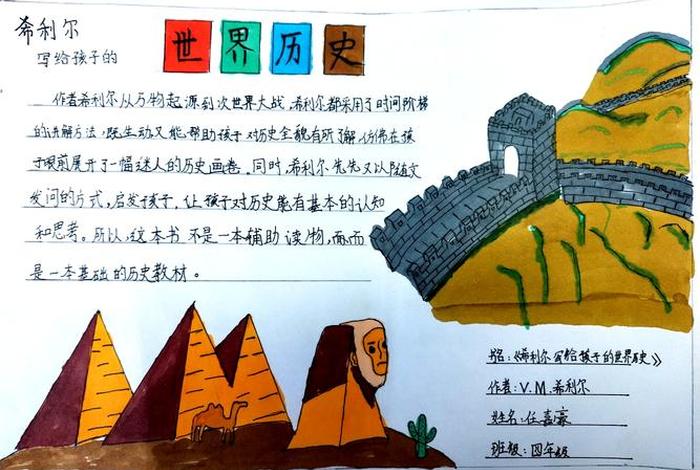 希利尔
写给孩子的
世界历史
作者希利尔从万物起源到次世界大战,希利尔都采用了时间阶梯
的讲解方法,既生动又能,帮助孩子对历史全貌有所了解,仿佛在孩
子眼前展开了一幅迷人的历史画卷。同时,希利尔先先又以随文
发问的方式,启发孩子,让孩子对历史能有基本的认知
和思考。所以,这本书不是一本辅助读物,而而
是一本基础的历史教材。
书名:《希利尔写给孩子的世界历史》
作者:V.M.希利尔
姓名:任嘉豪
班级:四年级